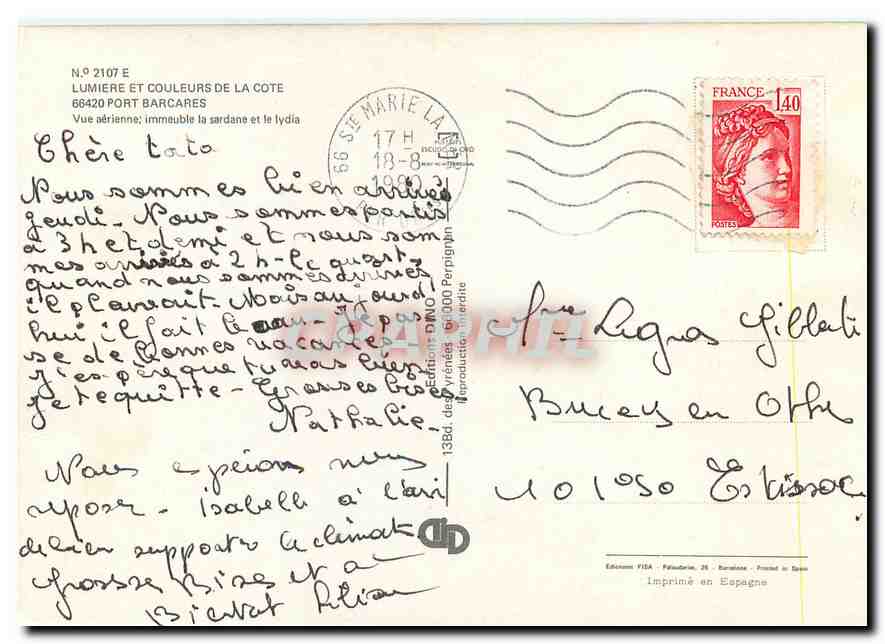 N.º 2107 E
LUMIERE ET COULEURS DE LA COTE
66420 PORT BARCARES
Vue aérienne; immeuble la sardane et le lydia
Chère tata
Nous sommes bien arrivés
jeudi. Nous sommes partis
à 3 h et demi et nous som
mes arrivés à 2 h - le quart
quand nous sommes arrivés
il pleuvait. Mais aujourd
hui il fait beau - Je pas
se de bonnes vacances -
J'espère que tu vas bien
Je te quitte - Grosses bises
Nathalie -
Nous espérons nous
reposer - isabelle à l'air
de bien supporter le climat
Grosses Bises et a
Bientot Lilian
Editions DINO
13Bd. des Pyrénées - 66000 Perpignan
Reproduction interdite
DID
66 STE MARIE LA
17 H
18-8
1980
FRANCE
1,40
POSTES
Legros Gilberte
Bucey en Othe
101090 Estissac
Ediciones FISA - Palaudarias, 26 - Barcelona - Printed in Spain
Imprimé en Espagne
CPAPHIL